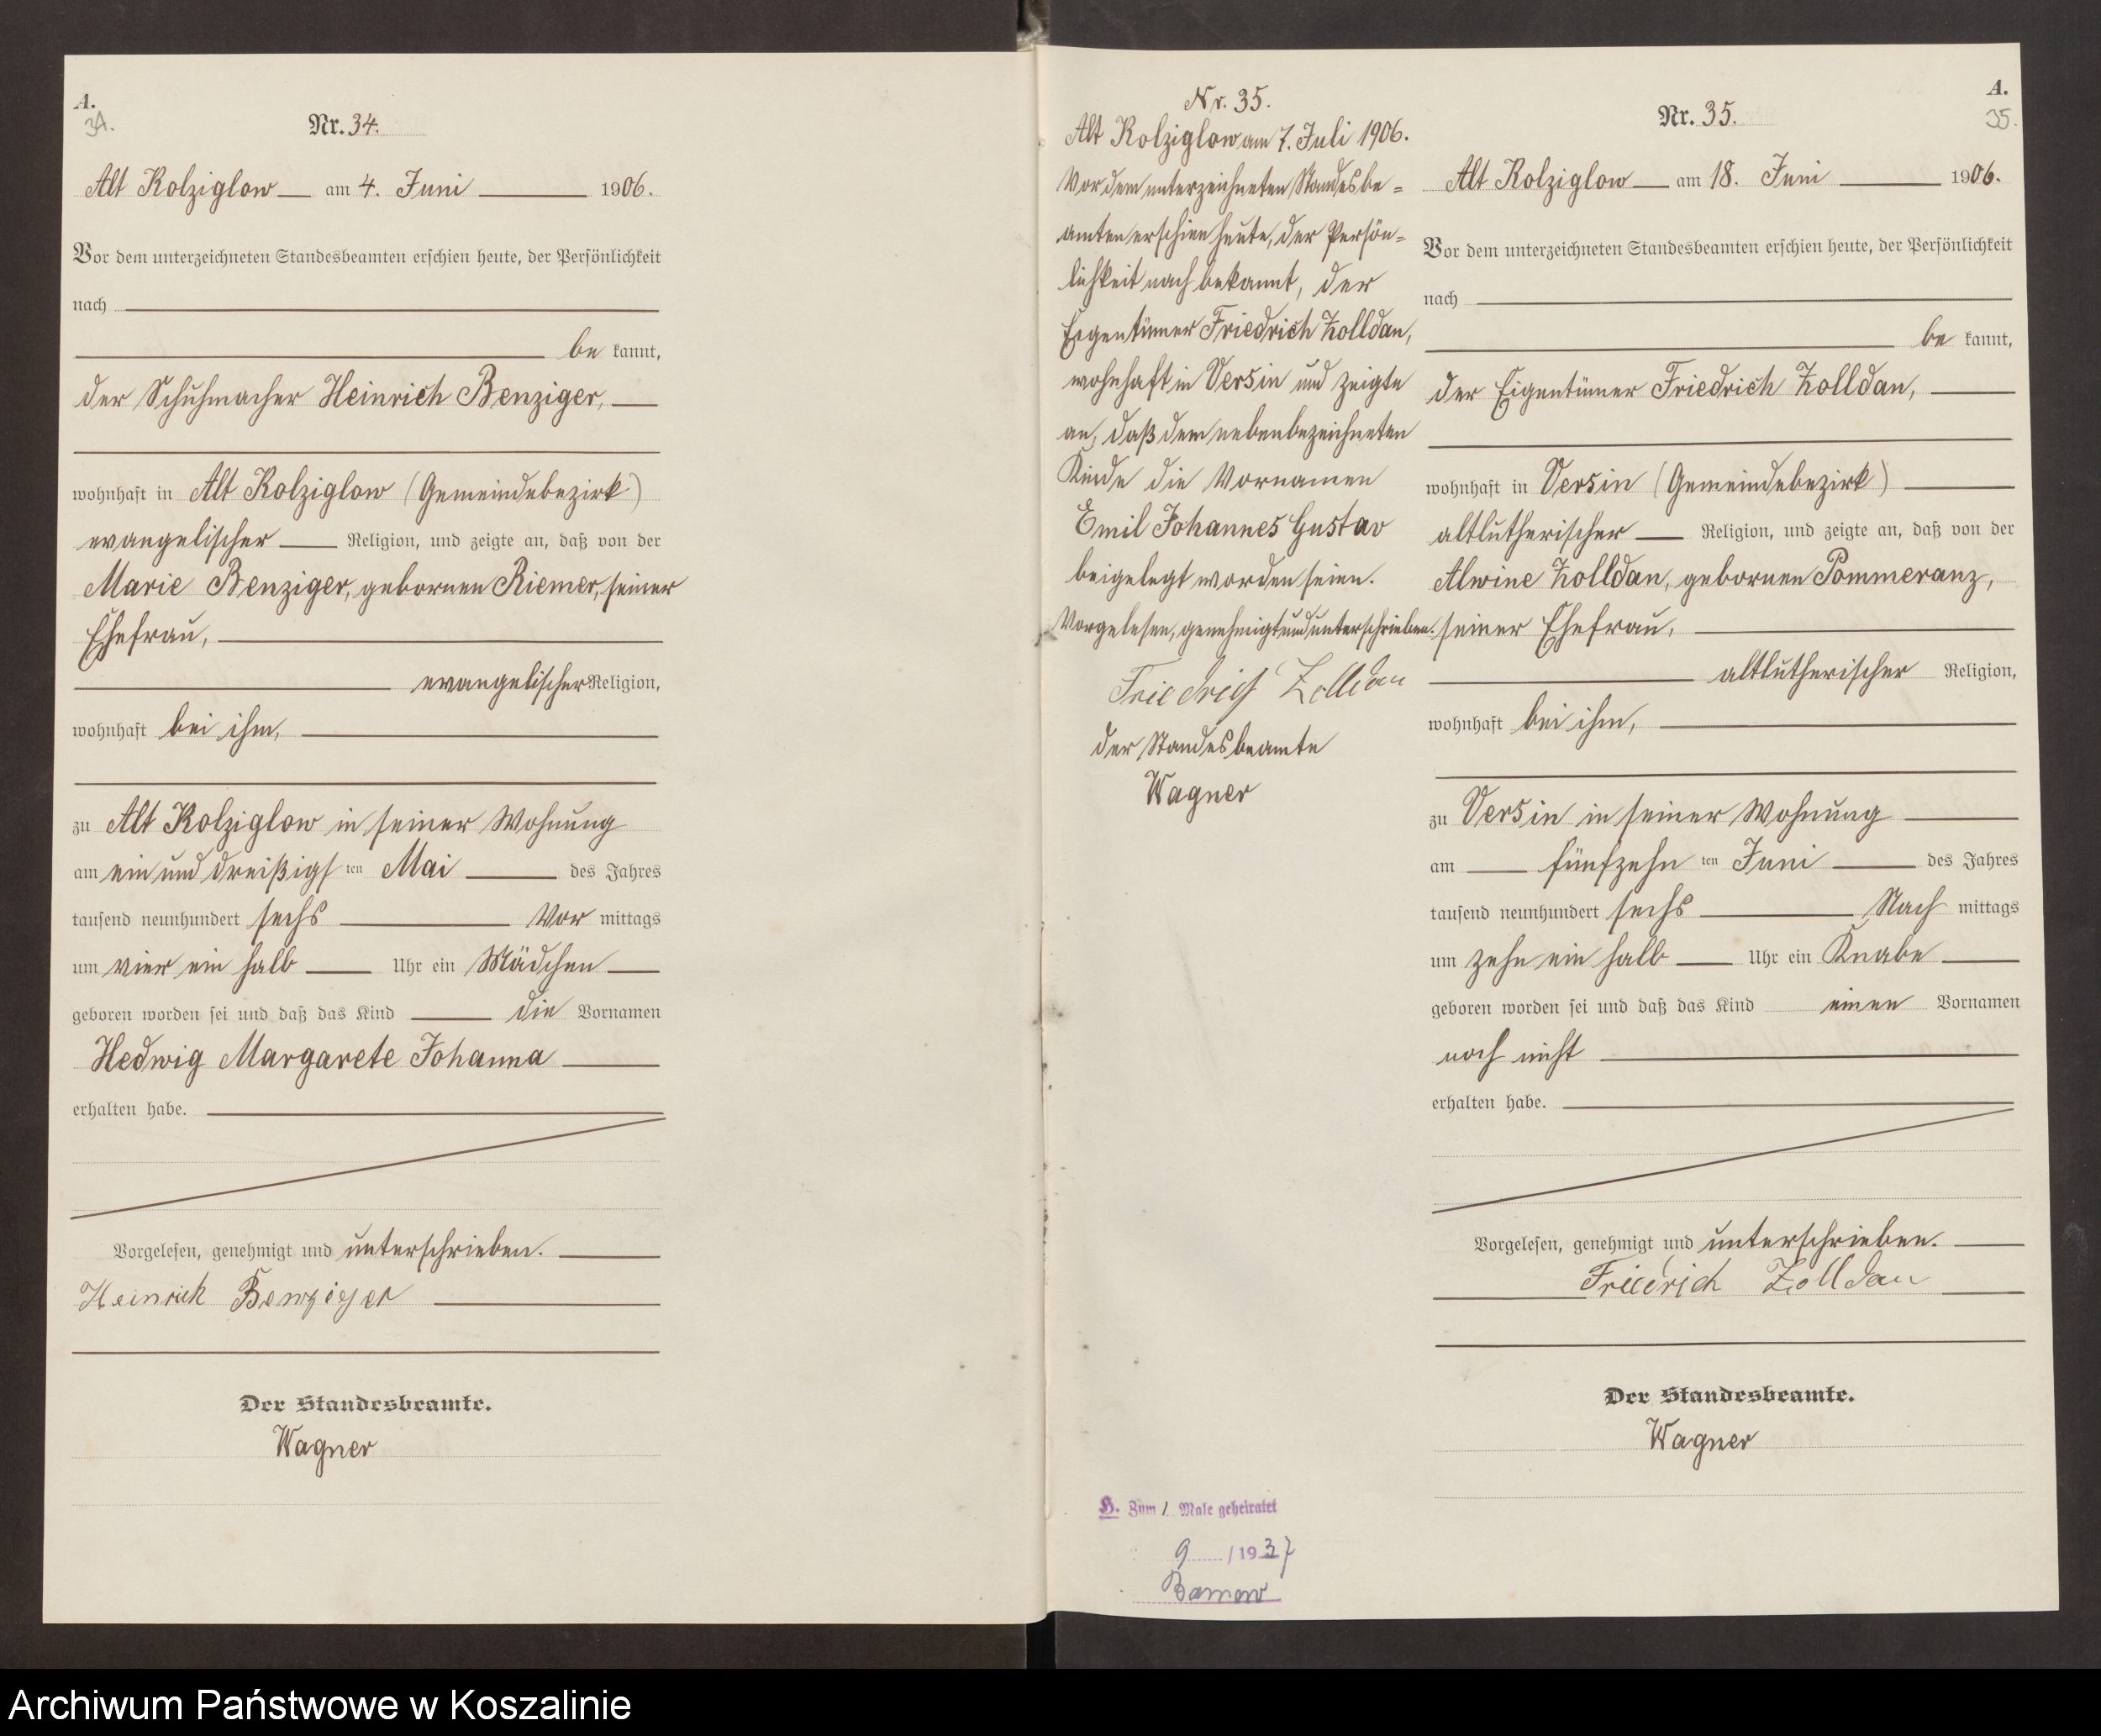 A.
34.
Nr. 34.
Alt Kolziglow am 4. Juni 1906.
Vor dem unterzeichneten Standesbeamten erschien heute, der Persönlichkeit
nach
be kannt,
der Schuhmacher Heinrich Benziger,
wohnhaft in Alt Kolziglow (Gemeindebezirk)
evangelischer Religion, und zeigte an, daß von der
Marie Benziger, gebornen Riemer, seiner
Ehefrau,
evangelischer Religion,
wohnhaft bei ihm,
zu Alt Kolziglow in seiner Wohnung
am ein und dreißigs ten Mai des Jahres
tausend neunhundert sechs Vor mittags
um vier ein halb Uhr ein Mädchen
geboren worden sei und daß das Kind die Vornamen
Hedwig Margarete Johanna
erhalten habe.
Vorgelesen, genehmigt und unterschrieben.
Heinrich Benziger
Der Standesbeamte.
Wagner
Nr. 35.
Alt Kolziglow am 7. Juli 1906.
Vor dem unterzeichneten Standesbe=
amten erschien heute, der Persön=
lichkeit nach bekannt, der
Eigentümer Friedrich Zolldan,
wohnhaft in Versin und zeigte
an, daß dem nebenbezeichneten
Kinde die Vornamen
Emil Johannes Gustav
beigelegt worden seien.
Vorgelesen, genehmigt und unterschrieben.
Friedrich Zolldan
der Standesbeamte
Wagner
H. Zum 1 Male geheiratet
9 /1937
A.
35.
Nr. 35.
Alt Kolziglow am 18. Juni 1906.
Vor dem unterzeichneten Standesbeamten erschien heute, der Persönlichkeit
nach
be kannt,
der Eigentümer Friedrich Zolldan,
wohnhaft in Versin (Gemeindebezirk)
altlutherischer Religion, und zeigte an, daß von der
Alwine Zolldan, gebornen Pommeranz,
seiner Ehefrau,
altlutherischer Religion,
wohnhaft bei ihm,
zu Versin in seiner Wohnung
am fünfzehn ten Juni des Jahres
tausend neunhundert sechs Nach mittags
um zehn ein halb Uhr ein Knabe
geboren worden sei und daß das Kind einen Vornamen
noch nicht
erhalten habe.
Vorgelesen, genehmigt und unterschrieben.
Friedrich Zolldan
Der Standesbeamte.
Wagner
Archiwum Państwowe w Koszalinie